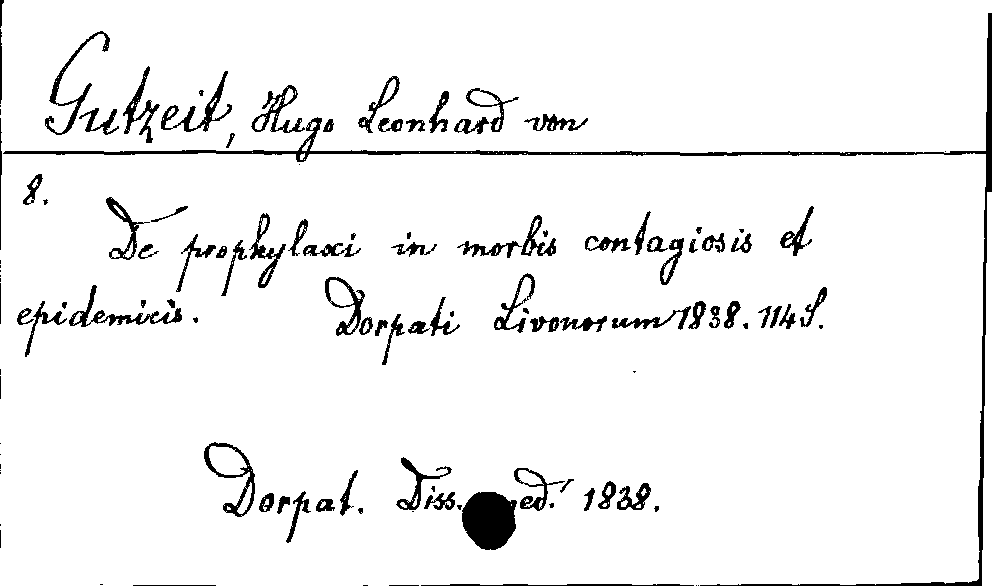 Gutzeit, Hugo Leonhard von
8.
De prophylaxi in morbis contagiosis et
epidemicis. Dorpati Livonorum 1838. 114 S.
Dorpat. Diss. 1838.